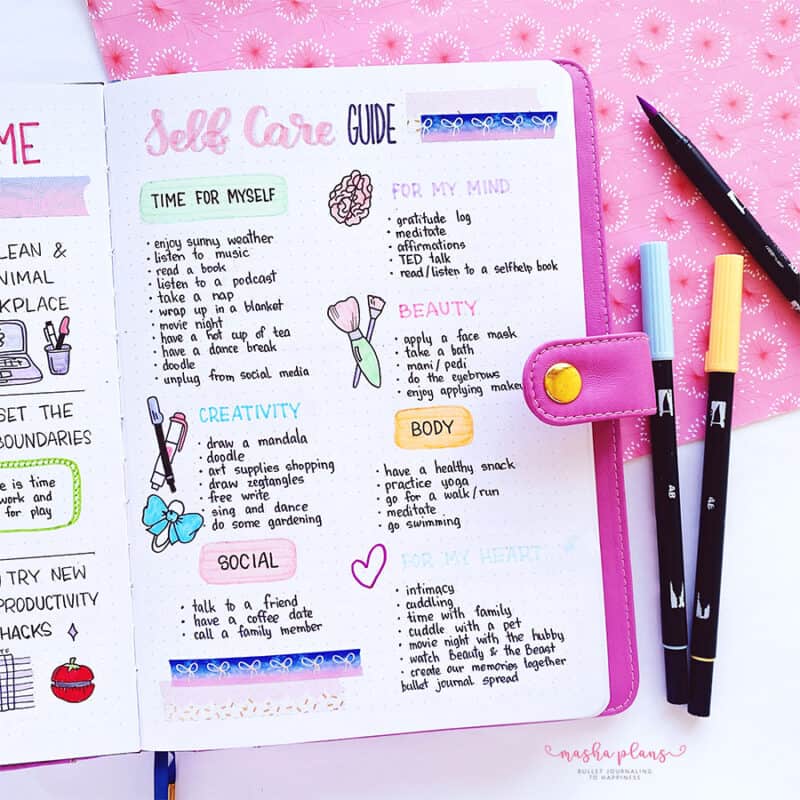 ME
LEAN &
NIMAL
KPLACE
SET THE
BOUNDARIES
e is time
work and
for play
TRY NEW
PRODUCTIVITY
HACKS
Self Care GUIDE
TIME FOR MYSELF
• enjoy sunny weather
• listen to music
• read a book
• listen to a podcast
• take a nap
• wrap up in a blanket
• movie night
• have a hot cup of tea
• have a dance break
• doodle
• unplug from social media
CREATIVITY
• draw a mandala
• doodle
• art supplies shopping
• draw zegtangles
• free write
• sing and dance
• do some gardening
SOCIAL
• talk to a friend
• have a coffee date
• call a family member
FOR MY MIND
• gratitude log
• meditate
• affirmations
• TED talk
• read/listen to a selfhelp book
BEAUTY
• apply a face mask
• take a bath
• mani / pedi
• do the eyebrows
• enjoy applying makeu
BODY
• have a healthy snack
• practice yoga
• go for a walk/run
• meditate
• go swimming
FOR MY HEART
• intimacy
• cuddling
• time with family
• cuddle with a pet
• movie night with the hubby
• watch Beauty & the Beast
• create our memories together
bullet journal spread
masha plans
BULLET JOURNALING
TO HAPPINESS